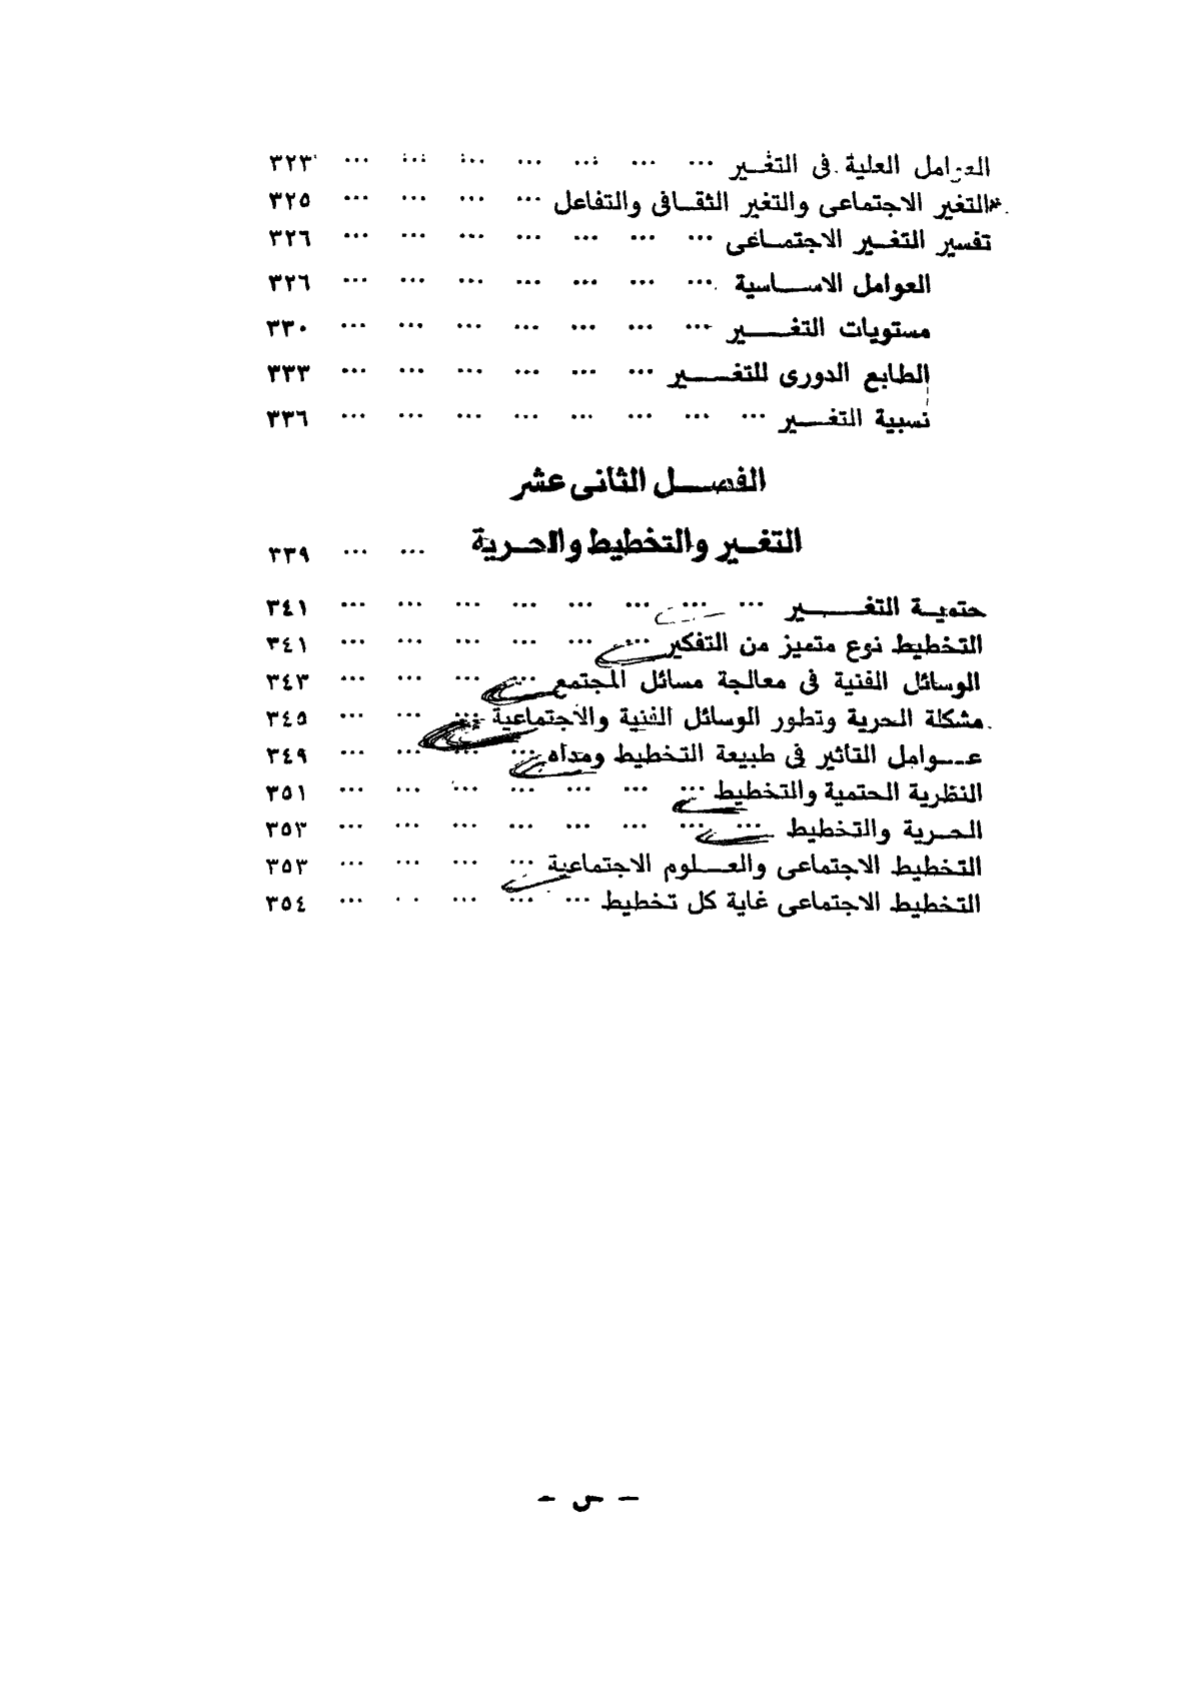 العوامل العلية فى التغير ... ... ... ... ... ... ... ٣٢٣
التغير الاجتماعى والتغير الثقافى والتفاعل ... ... ... ... ٣٢٥
تفسير التغير الاجتماعى ... ... ... ... ... ... ... ٣٢٦
العوامل الاساسية ... ... ... ... ... ... ... ٣٢٦
مستويات التغير ... ... ... ... ... ... ... ٣٣٠
الطابع الدورى للتغير ... ... ... ... ... ... ٣٣٣
نسبية التغير ... ... ... ... ... ... ... ... ٣٣٦
الفصل الثانى عشر
التغير والتخطيط والحرية ... ... ... ٣٣٩
حتمية التغير ... ... ... ... ... ... ... ... ٣٤١
التخطيط نوع متميز من التفكير ... ... ... ... ... ... ٣٤١
الوسائل الفنية فى معالجة مسائل المجتمع ... ... ... ... ٣٤٣
مشكلة الحرية وتطور الوسائل الفنية والاجتماعية ... ... ... ٣٤٥
عوامل التأثير فى طبيعة التخطيط ومداه ... ... ... ... ٣٤٩
النظرية الحتمية والتخطيط ... ... ... ... ... ... ... ٣٥١
الحرية والتخطيط ... ... ... ... ... ... ... ... ٣٥٣
التخطيط الاجتماعى والعلوم الاجتماعية ... ... ... ... ٣٥٣
التخطيط الاجتماعى غاية كل تخطيط ... ... ... ... ... ٣٥٤
- س -